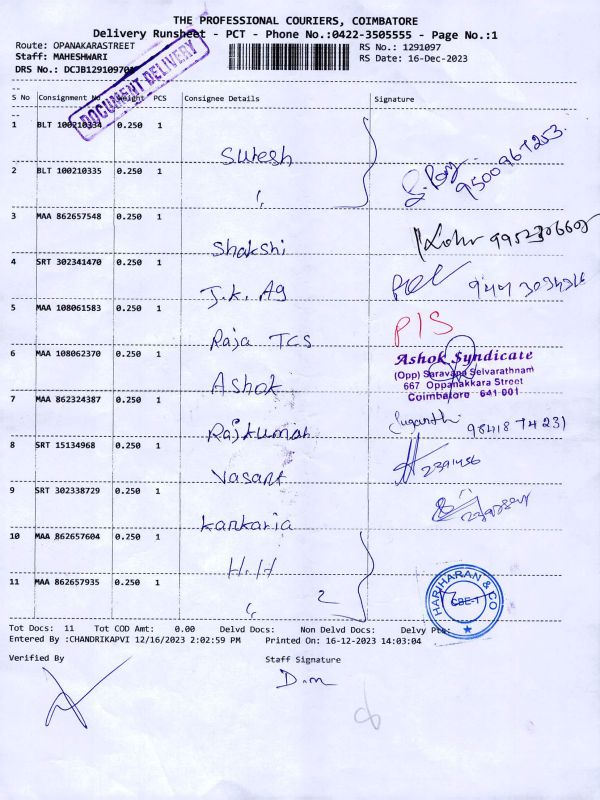 THE PROFESSIONAL COURIERS, COIMBATORE
Delivery Runsheet - PCT - Phone No.:0422-3505555 - Page No.:1
Route: OPANAKARASTREET
RS No.: 1291097
Staff: MAHESHWARI
RS Date: 16-Dec-2023
DRS No.: DCJB1291097
DOCUMENT DELIVERY
S No Consignment No Weight PCS Consignee Details Signature
1 BLT 100210334 0.250 1
Suresh
2 BLT 100210335 0.250 1
"
9500967253
3 MAA 862657548 0.250 1
Shakshi
4 SRT 302341470 0.250 1
J.K. Ag
5 MAA 108061583 0.250 1
Raja TCS
P/S
6 MAA 108062370 0.250 1
Ashok
Ashok Syndicate
(Opp) Saravana Selvarathnam
667 Oppanakkara Street
Coimbatore 641 001
7 MAA 862324387 0.250 1
Rajkumar
98418 74231
8 SRT 15134968 0.250 1
Vasant
2391456
9 SRT 302338729 0.250 1
Kankaria
10 MAA 862657604 0.250 1
H.H
11 MAA 862657935 0.250 1
" 2
HARIHARAN & CO
CBE-1
Tot Docs: 11 Tot COD Amt: 0.00 Delvd Docs: Non Delvd Docs: Delvy Pts:
Entered By :CHANDRIKAPVI 12/16/2023 2:02:59 PM Printed On: 16-12-2023 14:03:04
Verified By
Staff Signature
D.m